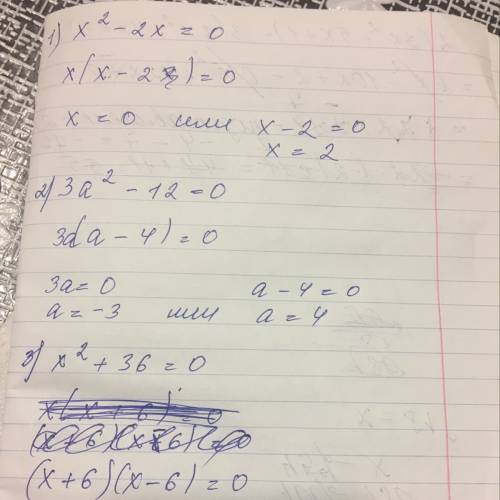 1) x² - 2x = 0
x(x - 2) = 0
x = 0 или x - 2 = 0
x = 2
2) 3a² - 12 = 0
3a(a - 4) = 0
3a = 0 a - 4 = 0
a = -3 или a = 4
3) x² + 36 = 0
x(x + 6) = 0
(x + 6)(x - 6) = 0